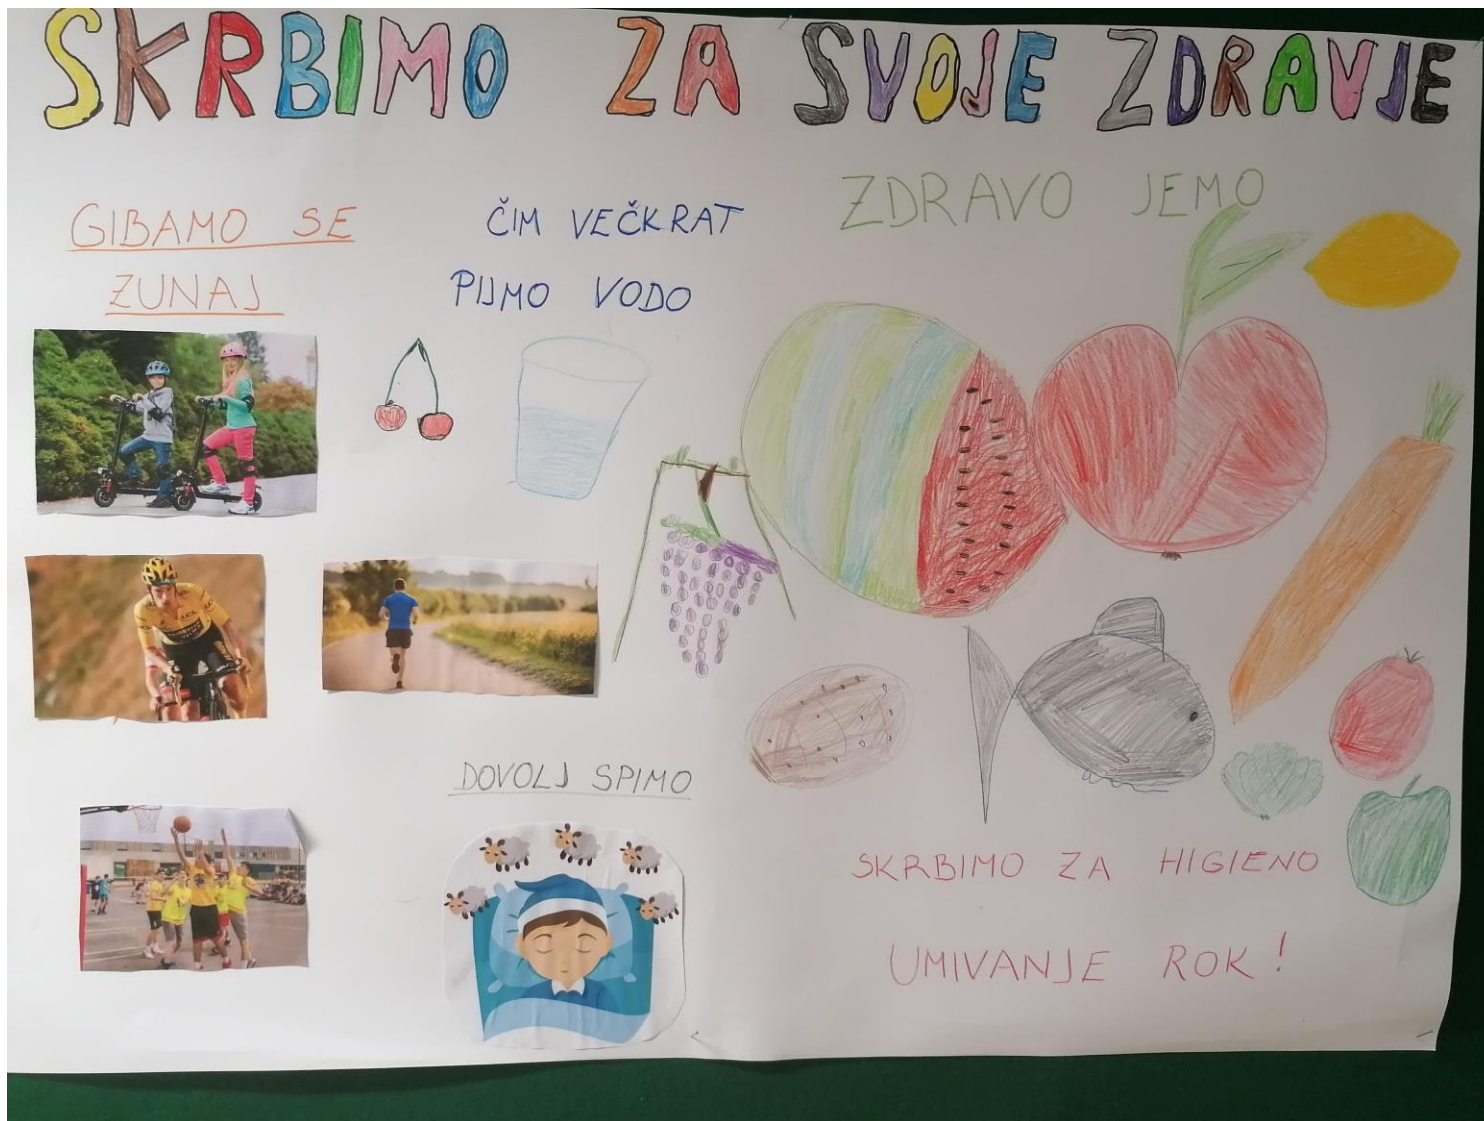 SKRBIMO ZA SVOJE ZDRAVJE
GIBAMO SE
ZUNAJ
ČIM VEČKRAT
PIJMO VODO
ZDRAVO JEMO
DOVOLJ SPIMO
SKRBIMO ZA HIGIENO
UMIVANJE ROK!